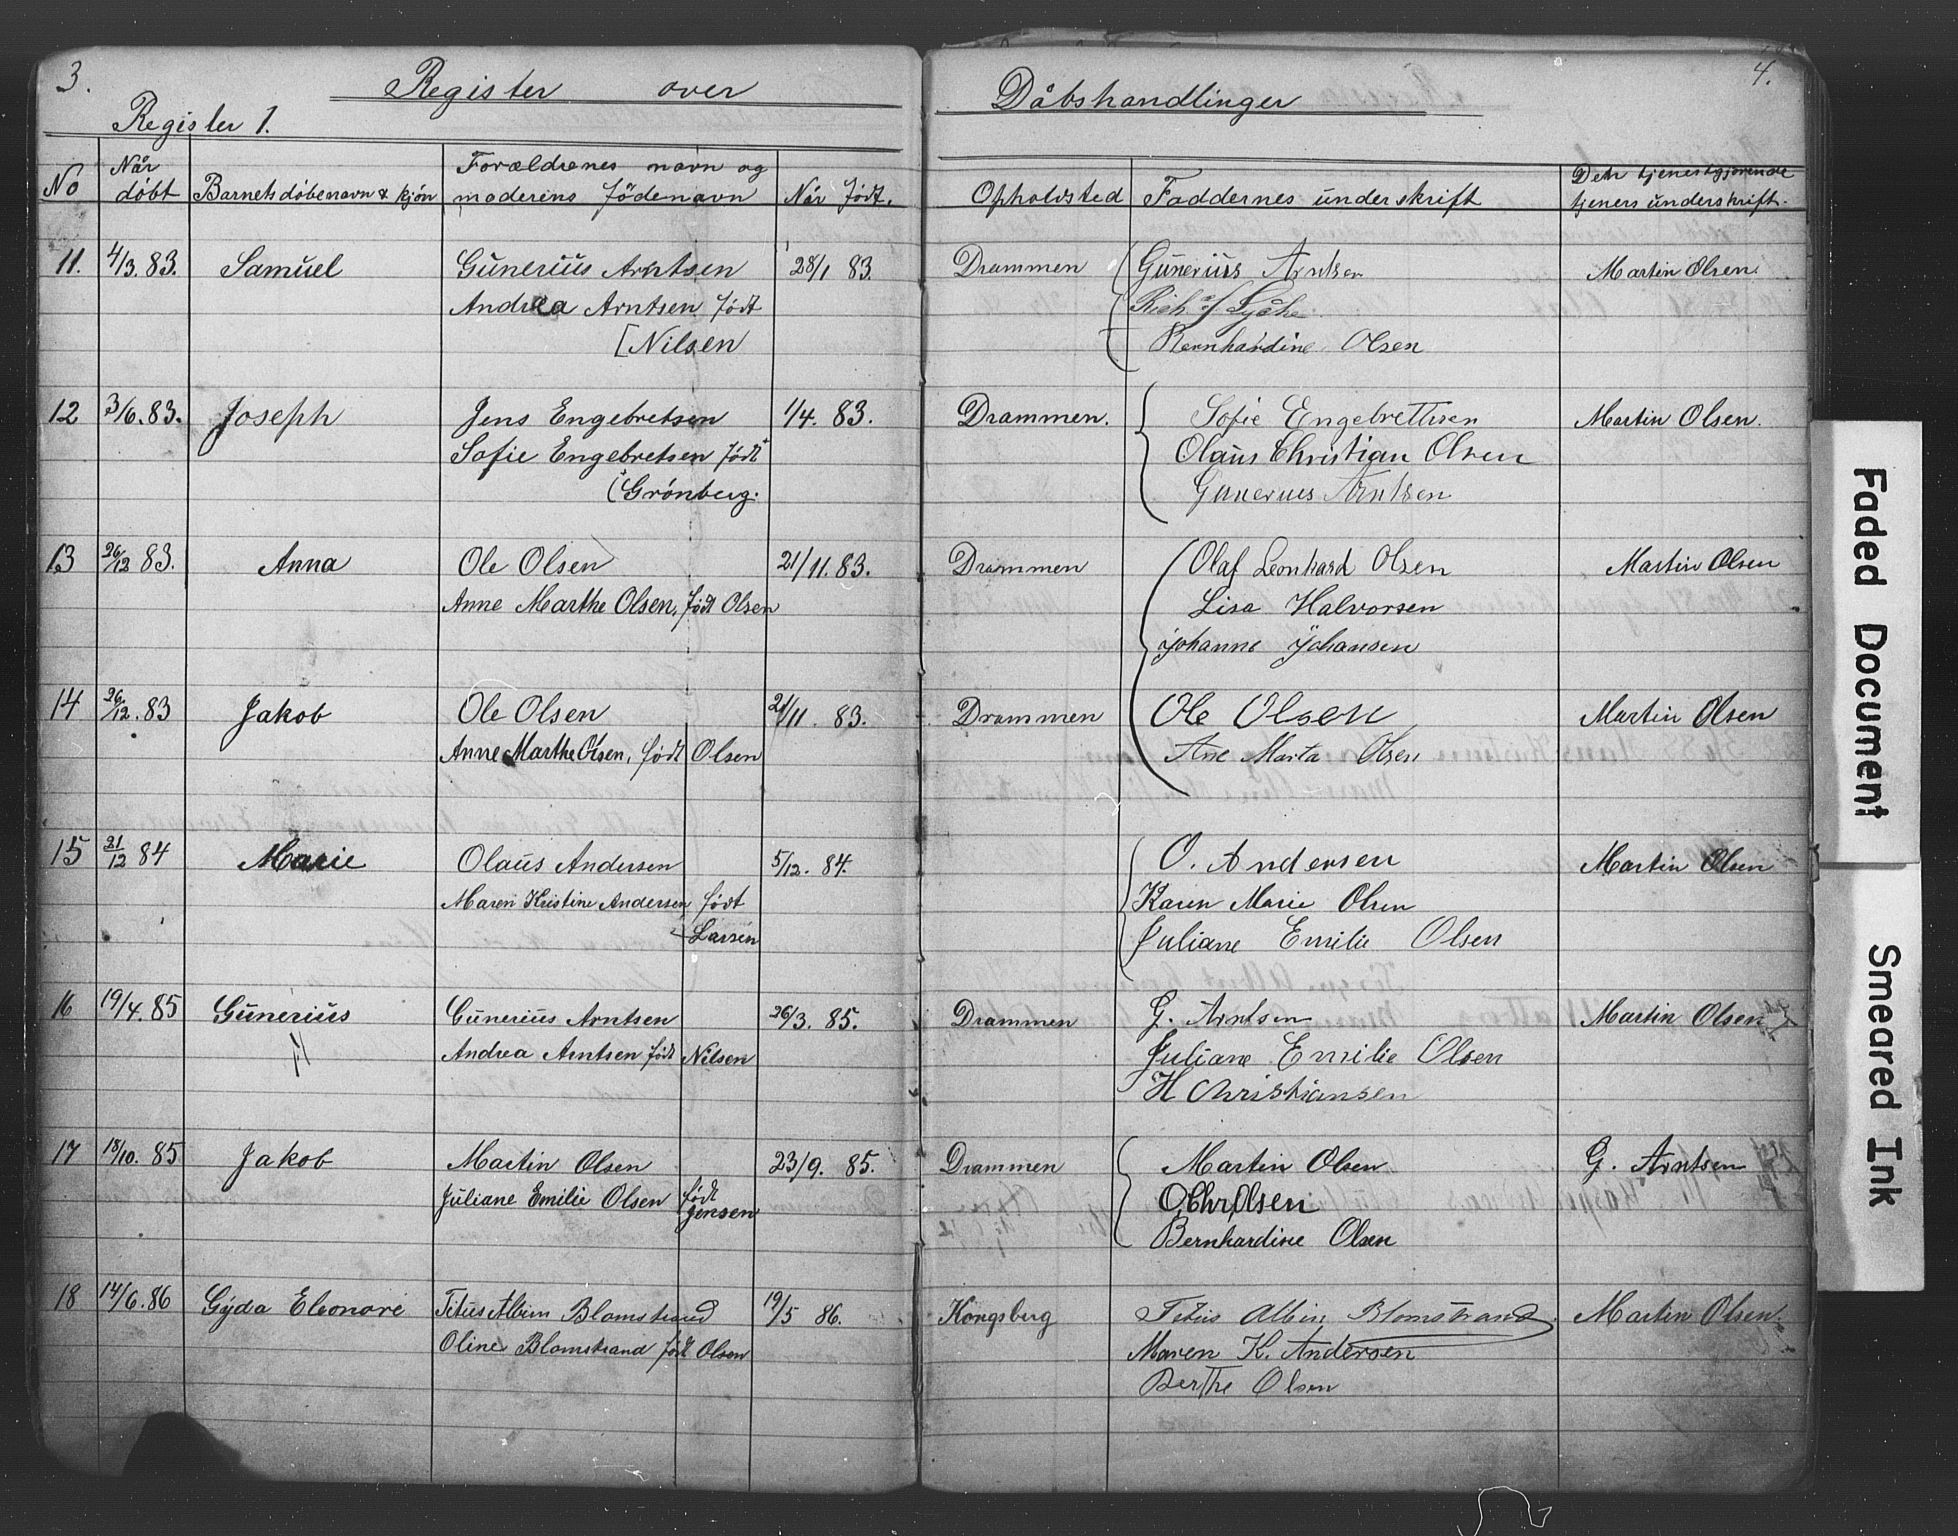 3.
Register over
Register 1.
No
Når døbt
Barnets døbenavn & kjön
Forældrenes navn og
moderens Födenavn
Når födt.
11. 4/3. 83. Samuel Gunerius Arntsen 28/1 83.
Andrea Arntsen födt
[Nilsen
12 3/6. 83. Joseph Jens Engebretsen 1/4. 83.
Sofie Engebretsen födt
(Grönberg.
13 26/12 83. Anna Ole Olsen 21/11. 83.
Anne Marthe Olsen, födt Olsen
14 26/12. 83 Jakob Ole Olsen 21/11. 83.
Anne Marthe Olsen, födt Olsen
15 21/12 84 Marie Olaus Andersen 5/12. 84.
Maren Kristine Andersen födt
Larsen
16 19/4. 85 Gunerius Gunerius Arntsen 26/3. 85.
Andrea Arntsen födt Nilsen
17 18/10. 85 Jakob Martin Olsen 23/9. 85.
Juliane Emilie Olsen födt
Jensen
18 14/6. 86 Gyda Eleonore Titus Albin Blomstrand 19/5 86.
Oline Blomstrand födt Olsen
4.
Dåbshandlinger
Opholdsted
Faddernes underskrift
Den tjenestgjörende
tjeners underskrift.
Drammen Gunerius Arntsen Martin Olsen
Bernhardine Olsen
Drammen. Sofie Engebrettsen Martin Olsen.
Olaus Christian Olsen
Gunerius Arntsen
Drammen Olaf Leonhard Olsen Martin Olsen
Lisa Halvorsen
Johanne Johansen
Drammen Ole Olsen Martin Olsen
Ane Marta Olsen
O. Andersen Martin Olsen
Karen Marie Olsen
Juliane Emilie Olsen
Drammen G. Arntsen Martin Olsen
Juliane Emilie Olsen
H Christiansen
Drammen Martin Olsen G. Arntsen
O Chr Olsen
Bernhardine Olsen
Kongsberg Titus Albin Blomstrand Martin Olsen.
Maren K. Andersen
Berthe Olsen
Faded Document
Smeared Ink